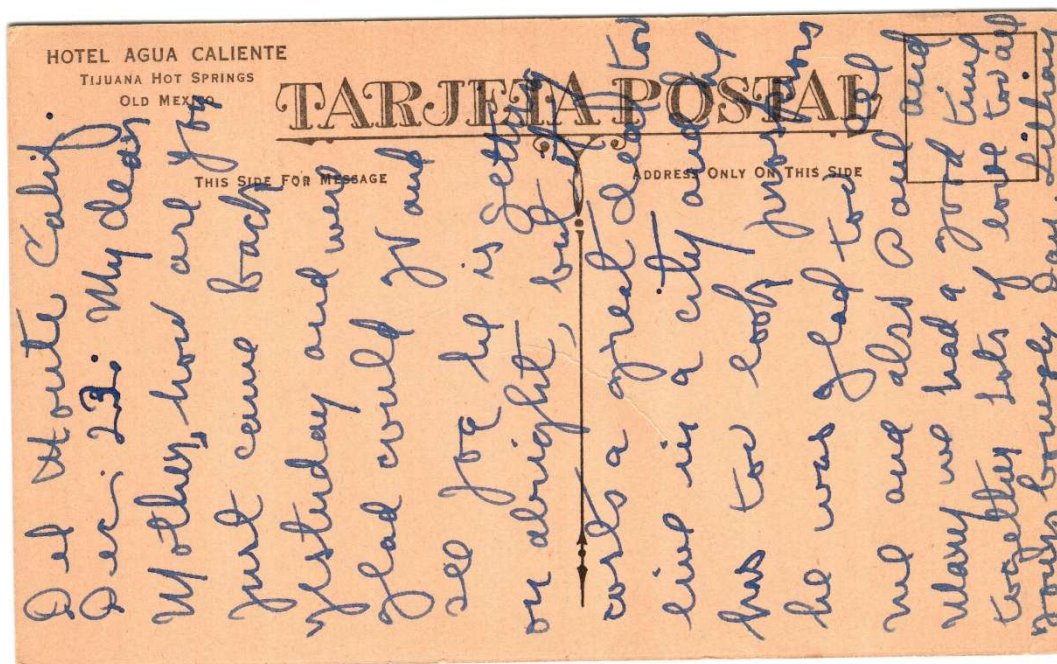 HOTEL AGUA CALIENTE
TIJUANA HOT SPRINGS
OLD MEXICO
TARJETA POSTAL
THIS SIDE FOR MESSAGE
ADDRESS ONLY ON THIS SIDE
Del Monte Calif.
Dec. 23. My dear
Mother, how are you
just came back
yesturday and were
glad could go and
see Joe he is getting
on alright, but it
costs a great deal too
live in a city and he
has too look prosperous
he was glad too see
me and also P and
Mary we had a good time
together lots of love too all
yours lovingly Lillian